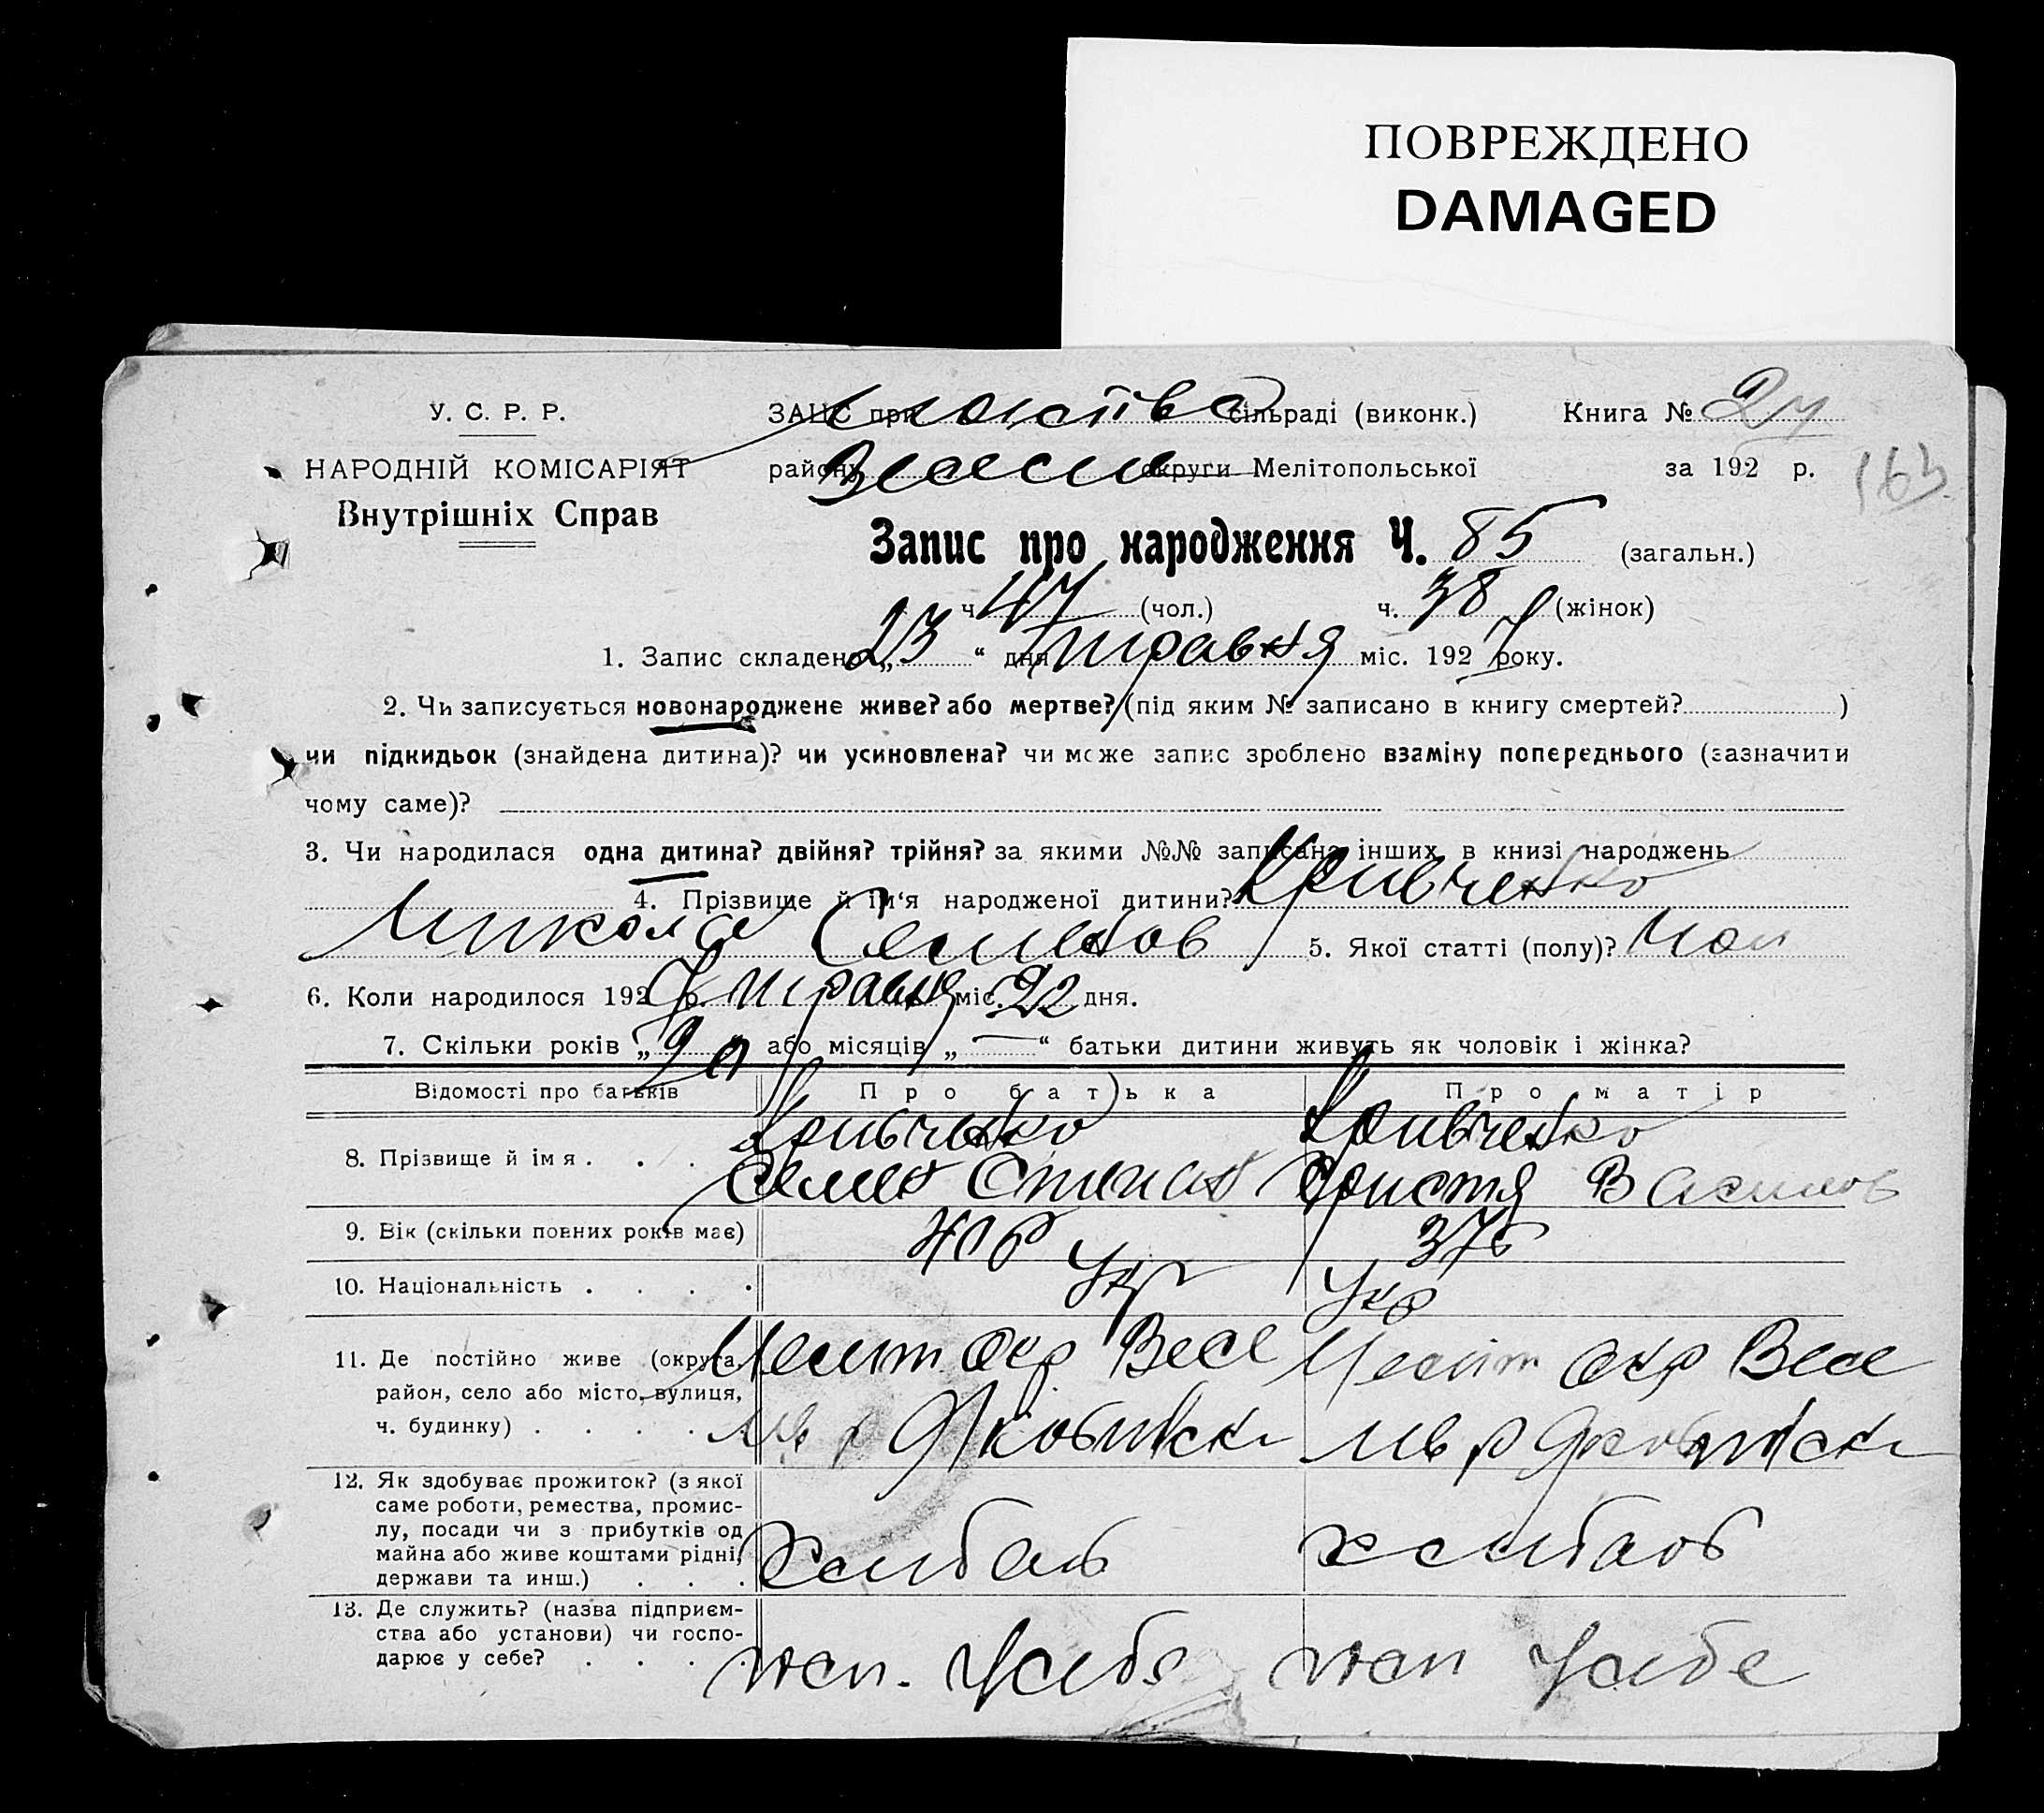 ПОВРЕЖДЕНО
DAMAGED
У. С. Р. Р. ЗАЦС при сільраді (виконк.) Книга №
НАРОДНІЙ КОМІСАРІЯТ району округи Мелітопольської за 192 р. 163
Внутрішніх Справ
Запис про народження Ч. 85 (загальн.)
ч. 47 (чол.) ч. 38 (жінок)
1. Запис складено „ 23 “ дня травня міс. 1927 року.
2. Чи записується новонароджене живе? або мертве? (під яким № записано в книгу смертей? )
чи підкидьок (знайдена дитина)? чи усиновлена? чи може запис зроблено взаміну попереднього (зазначити
чому саме)?
3. Чи народилася одна дитина? двійня? трійня? за якими №№ записана інших в книзі народжень
4. Прізвище й ім‘я народженої дитини? Кривченко
Микола Семенов 5. Якої статті (полу)? Чол
6. Коли народилося 1927 р. травня міс. 22 дня.
7. Скільки років „ “ або місяців „ — “ батьки дитини живуть як чоловік і жінка?
Відомості про батьків Про батька Про матір
8. Прізвище й імя . . . Кривченко Кривченко
Семен Степан Христя Васильов
9. Вік (скільки повних років має) 40р 37р
10. Національність . . . . Укр Укр
11. Де постійно живе (округа, Меліт окр Весе Меліт окр Весе
район, село або місто, вулиця,
ч. будинку) . . . .
12. Як здобуває прожиток? (з якої
саме роботи, ремества, промис-
лу, посади чи з прибутків од
майна або живе коштами рідні, хлибаоб хлибаоб
держави та инш.) . . .
13. Де служить? (назва підприєм-
ства або установи) чи госпо-
дарює у себе? . . . . Усибе Усибе